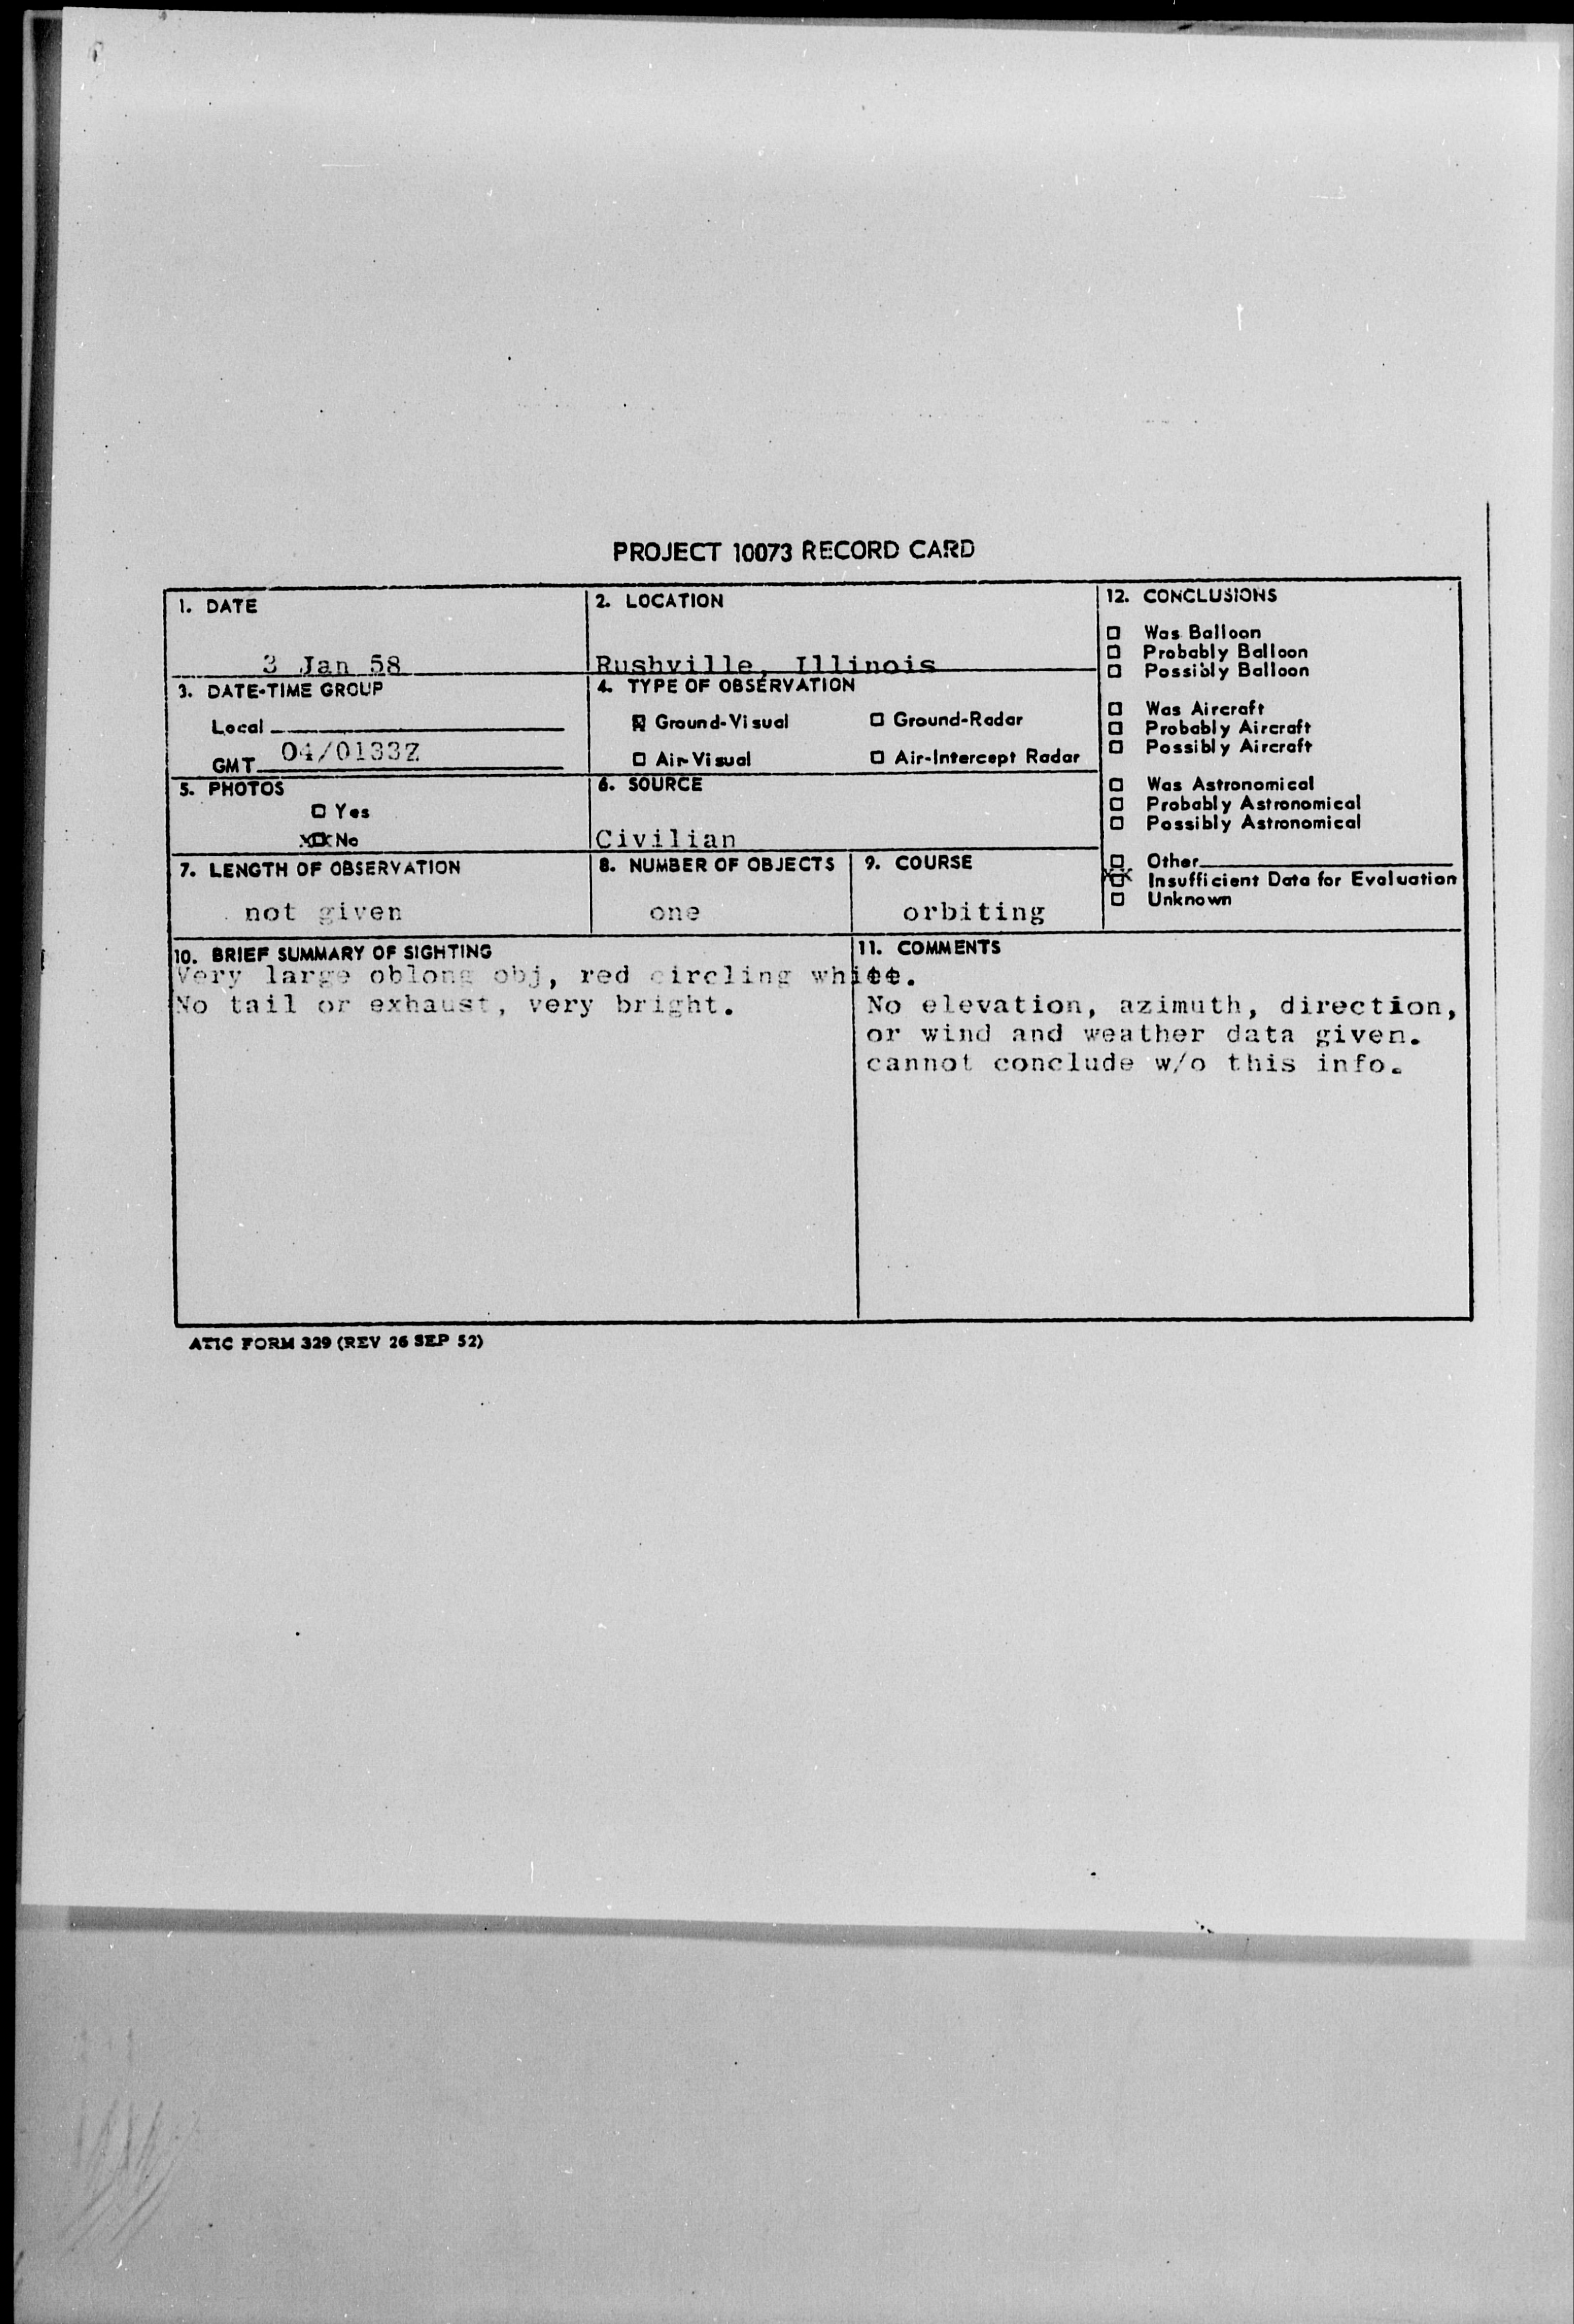 PROJECT 10073 RECORD CARD
1. DATE
3 Jan 58
2. LOCATION
Rushville, Illinois
3. DATE-TIME GROUP
Local
GMT 04/0133Z
4. TYPE OF OBSERVATION
Ground-Visual Ground-Radar
Air-Visual Air-Intercept Radar
5. PHOTOS
Yes
XX No
6. SOURCE
Civilian
7. LENGTH OF OBSERVATION
not given
8. NUMBER OF OBJECTS
one
9. COURSE
orbiting
10. BRIEF SUMMARY OF SIGHTING
Very large oblong obj, red circling white.
No tail or exhaust, very bright.
11. COMMENTS
No elevation, azimuth, direction,
or wind and weather data given.
cannot conclude w/o this info.
12. CONCLUSIONS
Was Balloon
Probably Balloon
Possibly Balloon
Was Aircraft
Probably Aircraft
Possibly Aircraft
Was Astronomical
Probably Astronomical
Possibly Astronomical
Other
XX Insufficient Data for Evaluation
Unknown
ATIC FORM 329 (REV 26 SEP 52)